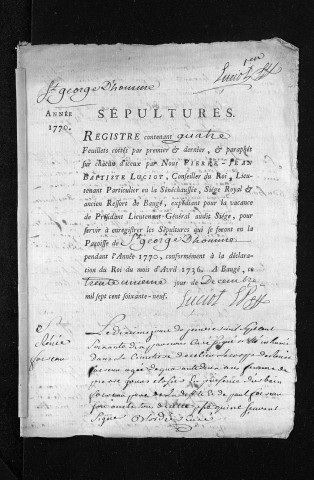 1er
Luciot
St george Dhomme
ANNÉE
1770.
SÉPULTURES.
REGISTRE contenant quatre
Feuillets cottés par premier & dernier, & paraphés
sur chacun d'iceux par Nous PIERRE-JEAN
BAPTISTE LUCIOT, Conseiller du Roi, Lieu-
tenant Particulier en la Sénéchaussée, Siége Royal &
ancien Ressort de Baugé, expédiant pour la vacance
de Président Lieutenant-Général audit Siége, pour
servir à enregistrer les Sépultures qui se feront en la
Paroisse de St george Dhomme
pendant l'Année 1770, conformément à la déclara-
tion du Roi du mois d'Avril 1736. A Baugé, ce
trente unieme jour de Decembre
mil sept cent soixante-neuf.
Luciot
Le dixieme jour de janvier mil sept cent
soixante dix par nous Curé soussigné a été inhumé
dans le Cimetiere de ce lieu le corps de
agée de quarante deux ans femme de
pierre en presence de
de paul
qui ne scavent
signer